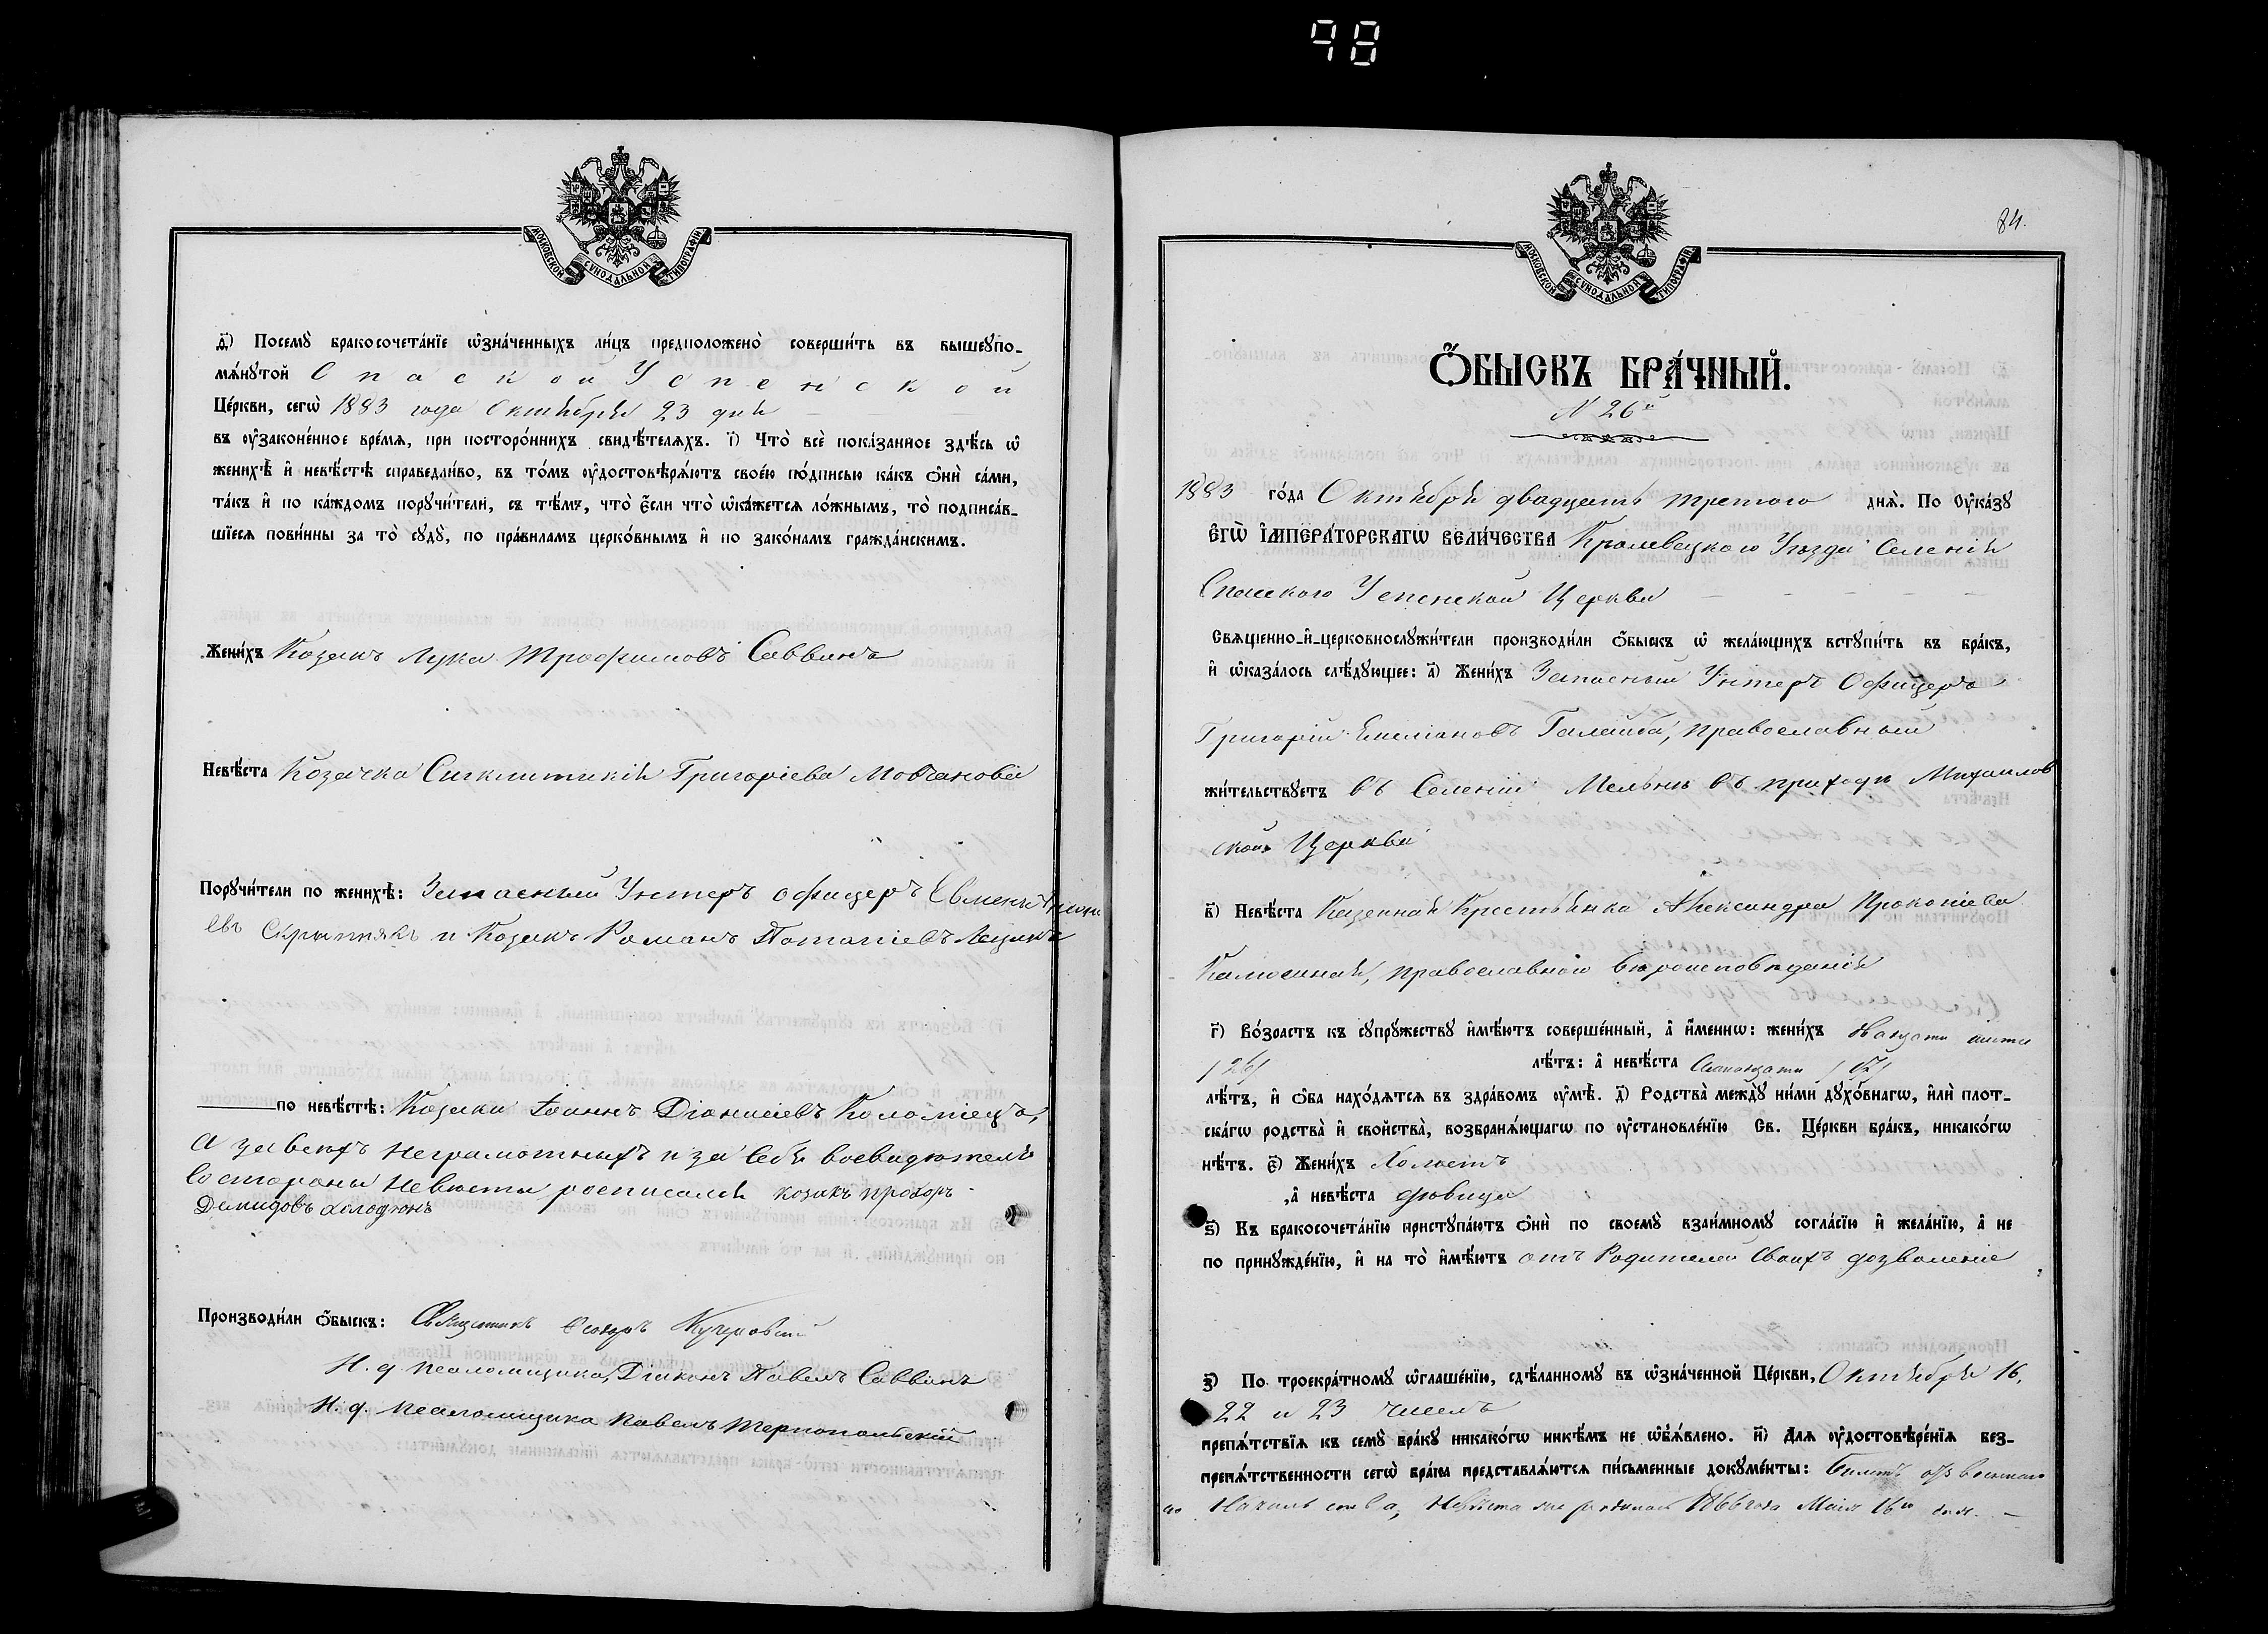 98
МОСКОВСКОЙ СѴНОДАЛЬНОЙ ТИПОГРАФІИ
д҃) Посемꙋ̀ бракосочета́нїе ѡ҆зна́ченныхъ ли́цъ предположено̀ соверши́ть въ вышеꙋпо-
мѧ́нꙋтой Спаской Успенской
Це́ркви, сегѡ̀ 1883 года Октября 23 дня
въ ᲂу҆законе́нное вре́мѧ, при посторо́ннихъ свидѣ́телѧхъ. і҃) Что̀ всѐ пока́занное здѣ́сь ѡ҆
женихѣ̀ и҆ невѣ́стѣ справедли́во, въ то́мъ ᲂу҆достовѣрѧ́ютъ свое́ю по́дписью ка́къ ѻ҆нѝ са́ми,
та́къ и҆ по ка́ждомъ порꙋчи́тели, съ тѣ́мъ, что̀ є҆́сли что̀ ѡ҆ка́жетсѧ ло́жнымъ, то̀ подписа́в-
шїесѧ пови́нны за то̀ сꙋдꙋ̀, по пра́виламъ церко́внымъ и҆ по зако́намъ гражда́нскимъ.
Жени́хъ Козакъ Лука Трофимовъ Саввинъ
Невѣ́ста Козачка Сигклитикія Григоріева Мовчанова
Порꙋчи́тели по женихѣ̀: Запасный Унтеръ офицеръ
евъ Скрыпнякъ и Козакъ Романъ Потапіевъ Лещикъ
по невѣ́стѣ: Козаки Іоаннъ Діонисіевъ Коломіецъ,
А за всехъ неграмотныхъ и за себя воевидетель
со стороны Невесты росписался козакъ прохоръ
Демидовъ холодюнъ
Производи́ли ѻ҆́быскъ: Священникъ Ѳеодоръ Кучеровскій
И. д. псаломщика, Діаконъ Павелъ Саввинъ
И. д. псаломщика Павелъ Тернопольскій
МОСКОВСКОЙ СѴНОДАЛЬНОЙ ТИПОГРАФІИ
84.
Ѻ҆́БЫСКЪ БРА́ЧНЫЙ.
N 26й
1883 го́да Октября двадцать третого днѧ̀. По Оу҆ка́зꙋ
Є҆гѡ̀ І҆мпера́торскагѡ вели́чества Кролевецкого Уезда Селенія
Спаского Успенской Церкви
Свѧще́нно-и҆-церковнослꙋжи́тели производи́ли ѻ҆́быскъ ѡ҆ жела́ющихъ встꙋпи́ть въ бра́къ,
и҆ ѡ҆каза́лось слѣ́дꙋющее: а҃) Жени́хъ Запасный Унтеръ Офицеръ
Григорій Емеліановъ Галайба, православный
жи́тельствꙋетъ въ Селеніи Мельни въ приходе Михаилов
ской Церкви
в҃) Невѣ́ста Казенная Крестьянка Александра Прокопіева
православного вероисповеданія
г҃) Во́зрастъ къ сꙋпрꙋ́жествꙋ и҆мѣ́ютъ соверше́нный, а҆ и҆́меннѡ: жени́хъ
/26/ лѣ́тъ: а҆ невѣ́ста
лѣ́тъ, и҆ ѻ҆́ба нахо́дѧтсѧ въ здра́вомъ ᲂу҆мѣ̀. д҃) Родства̀ междꙋ̀ ни́ми дꙋхо́внагѡ, и҆лѝ плот-
ска́гѡ родства̀ и҆ сво́йства̀, возбранѧ́ющагѡ по ᲂу҆становле́нїю Св. Це́ркви бра́къ, никако́гѡ
нѣ́тъ. є҃) Жени́хъ Холостъ
, а҆ невѣ́ста девица
ѕ҃) Къ бракосочета́нїю пристꙋпа́ютъ ѻ҆нѝ по своемꙋ̀ взаи́мномꙋ согла́сїю и҆ жела́нїю, а҆ не
по принꙋжде́нїю, и҆ на то̀ и҆мѣ́ютъ отъ Родителей Своихъ дозволеніе
з҃) По троекра́тномꙋ ѡ҆глаше́нїю, сдѣ́ланномꙋ въ ѡ҆зна́ченной Це́ркви, Октября 16,
22 и 23 числъ
препѧ́тствїѧ къ семꙋ̀ бра́кꙋ никако́гѡ никѣ́мъ не ѡ҆б̾ѧ́влено. и҃) Для ᲂу҆достовѣре́нїѧ без-
препѧ́тственности сегѡ̀ бра́ка представлѧ́ютсѧ пи́сьменные докꙋме́нты: билетъ
го Начальства, Невеста же родилась 1866 года Маія 16го дня.